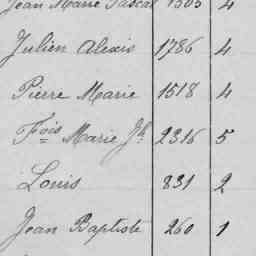 Jean Marie Pascal 1505 4
Julien Alexis 1786 4
Pierre Marie 1518 4
Fois Marie Jh 2316 5
Louis 831 2
Jean Baptiste 260 1